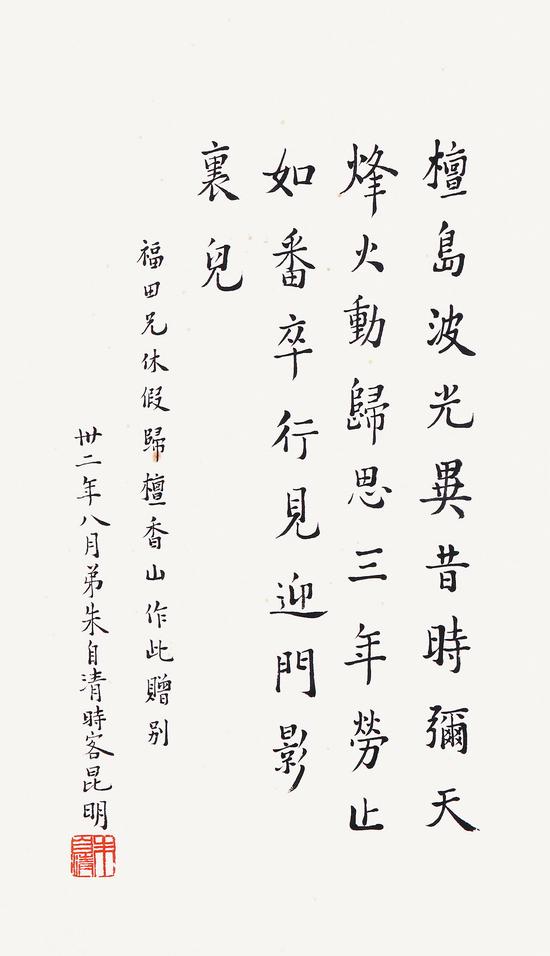 檀島波光異昔時彌天
烽火動歸思三年勞止
如番卒行見迎門影
裏兒
福田兄休假歸檀香山作此贈别
卅二年八月弟朱自清時客昆明
朱自清